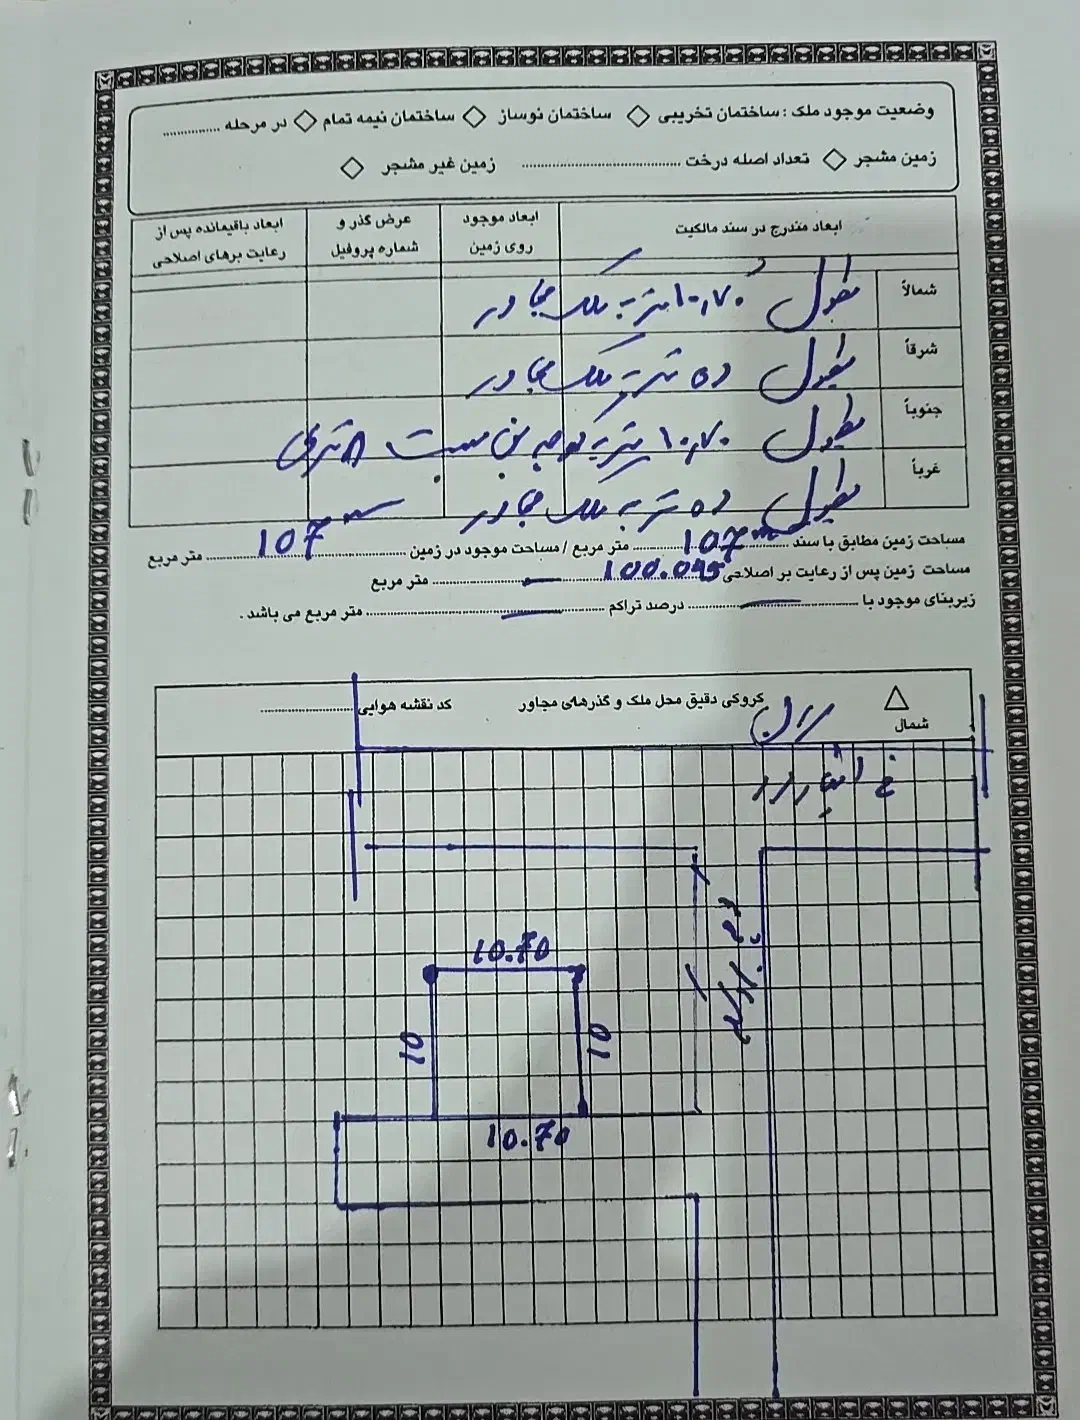 وضعیت موجود ملک : ساختمان تخریبی ◇ ساختمان نوساز ◇ ساختمان نیمه تمام ◇ در مرحله ..................
زمین مشجر ◇ تعداد اصله درخت .................................. زمین غیر مشجر ◇
ابعاد مندرج در سند مالکیت
ابعاد موجود روی زمین
عرض گذر و شماره پروفیل
ابعاد باقیمانده پس از رعایت برهای اصلاحی
شمالاً بطول ۱۰٫۷۰ متر به ملک مجاور
شرقاً بطول ده متر به ملک مجاور
جنوباً بطول ۱۰٫۷۰ متر به کوچه بن بست ۸ متری
غرباً بطول ده متر به ملک مجاور
مساحت زمین مطابق با سند 107 متر مربع / مساحت موجود در زمین 107 متر مربع
مساحت زمین پس از رعایت بر اصلاحی 100.095 متر مربع
زیربنای موجود با .................. درصد تراکم .................. متر مربع می باشد .
△
شمال
کروکی دقیق محل ملک و گذرهای مجاور
کد نقشه هوایی ..................
خ
کوچه
10.70
10
10
10.70